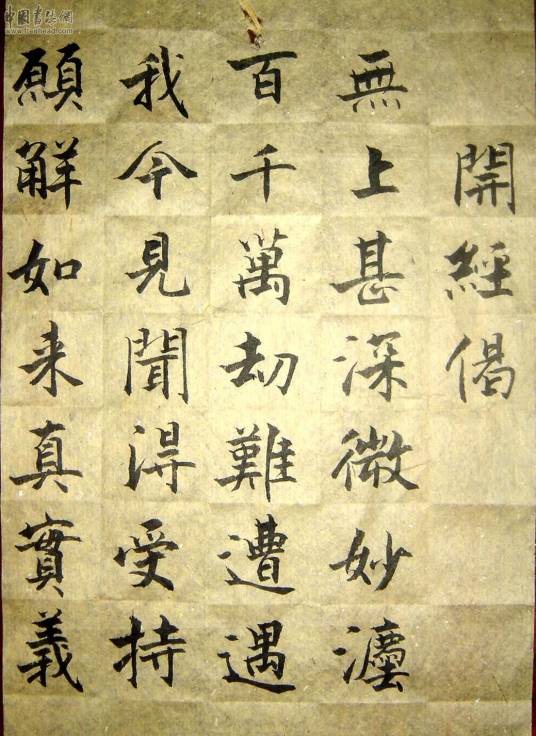 中國書法網
www.freehead.com
開經偈
無上甚深微妙灋
百千萬劫難遭遇
我今見聞得受持
願解如来真實義